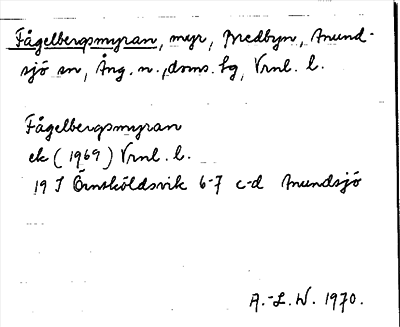 Fågelbergsmyran, myr, Bredbyn, Anund-
sjö sn, Ång. n., doms. lg, Vrnl. l.
Fågelbergsmyran
ek (1969) Vrnl. l.
19 I Örnsköldsvik 6-7 c-d Anundsjö
A.-L. W. 1970.